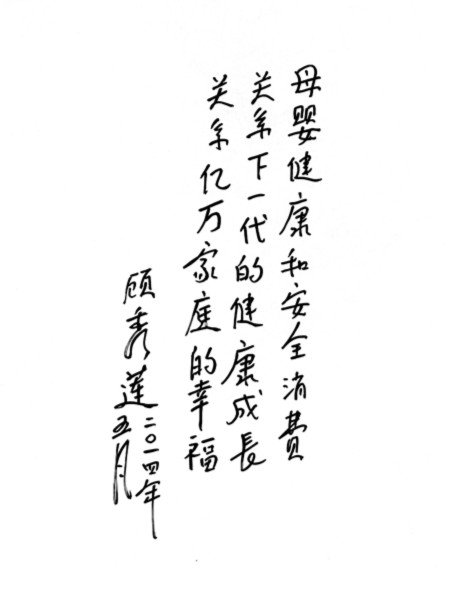 母婴健康和安全消费
关系下一代的健康成長
关系亿万家庭的幸福
顾秀莲
二〇一四年
五月